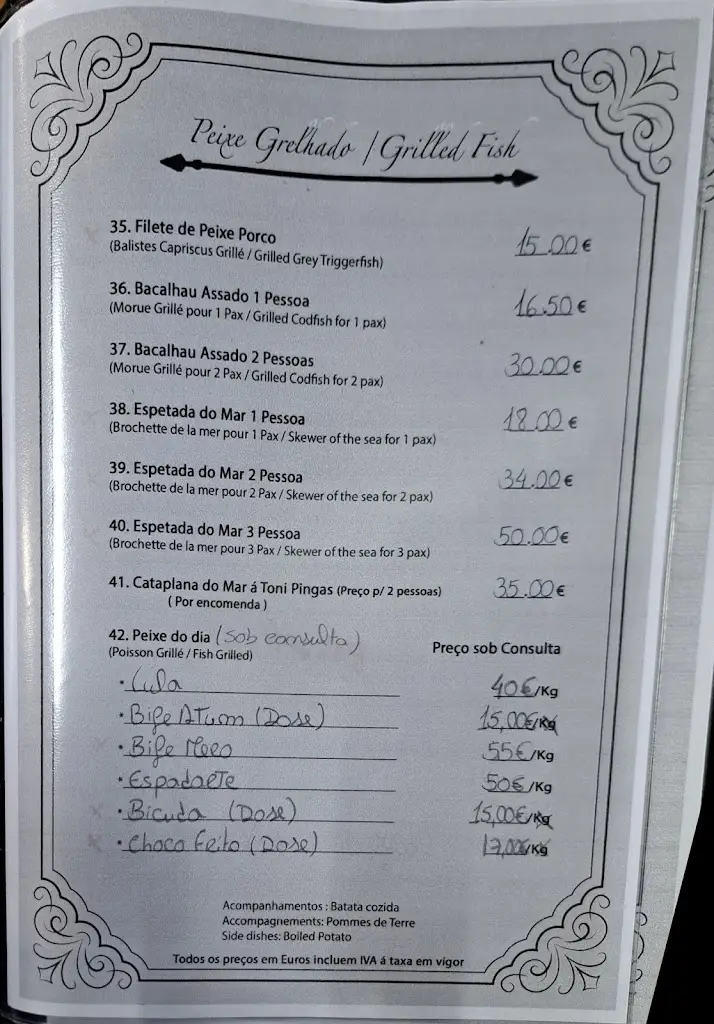 Peixe Grelhado / Grilled Fish
35. Filete de Peixe Porco 15.00€
(Balistes Capriscus Grillé / Grilled Grey Triggerfish)
36. Bacalhau Assado 1 Pessoa 16.50€
(Morue Grillé pour 1 Pax / Grilled Codfish for 1 pax)
37. Bacalhau Assado 2 Pessoas 30.00€
(Morue Grillé pour 2 Pax / Grilled Codfish for 2 pax)
38. Espetada do Mar 1 Pessoa 18.00€
(Brochette de la mer pour 1 Pax / Skewer of the sea for 1 pax)
39. Espetada do Mar 2 Pessoa 34.00€
(Brochette de la mer pour 2 Pax / Skewer of the sea for 2 pax)
40. Espetada do Mar 3 Pessoa 50.00€
(Brochette de la mer pour 3 Pax / Skewer of the sea for 3 pax)
41. Cataplana do Mar á Toni Pingas (Preço p/ 2 pessoas) 35.00€
( Por encomenda )
42. Peixe do dia (sob consulta) Preço sob Consulta
(Poisson Grillé / Fish Grilled)
• Lula 40€/Kg
• Bife Atum (Dose) 15,00€/Kg
• Bife Mero 55€/Kg
• Espadarte 50€/Kg
• Bicuda (Dose) 15,00€/Kg
• Choco Feito (Dose) 17,00€/Kg
Acompanhamentos : Batata cozida
Accompagnements: Pommes de Terre
Side dishes: Boiled Potato
Todos os preços em Euros incluem IVA á taxa em vigor